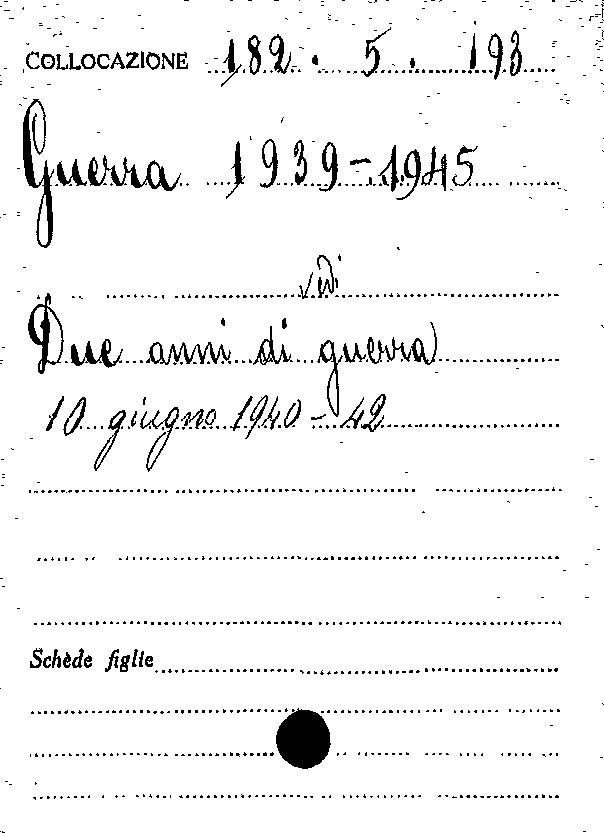 COLLOCAZIONE 182. 5. 193
Guerra 1939-1945
vedi
Due anni di guerra
10 giugno 1940-42
Schède figlie